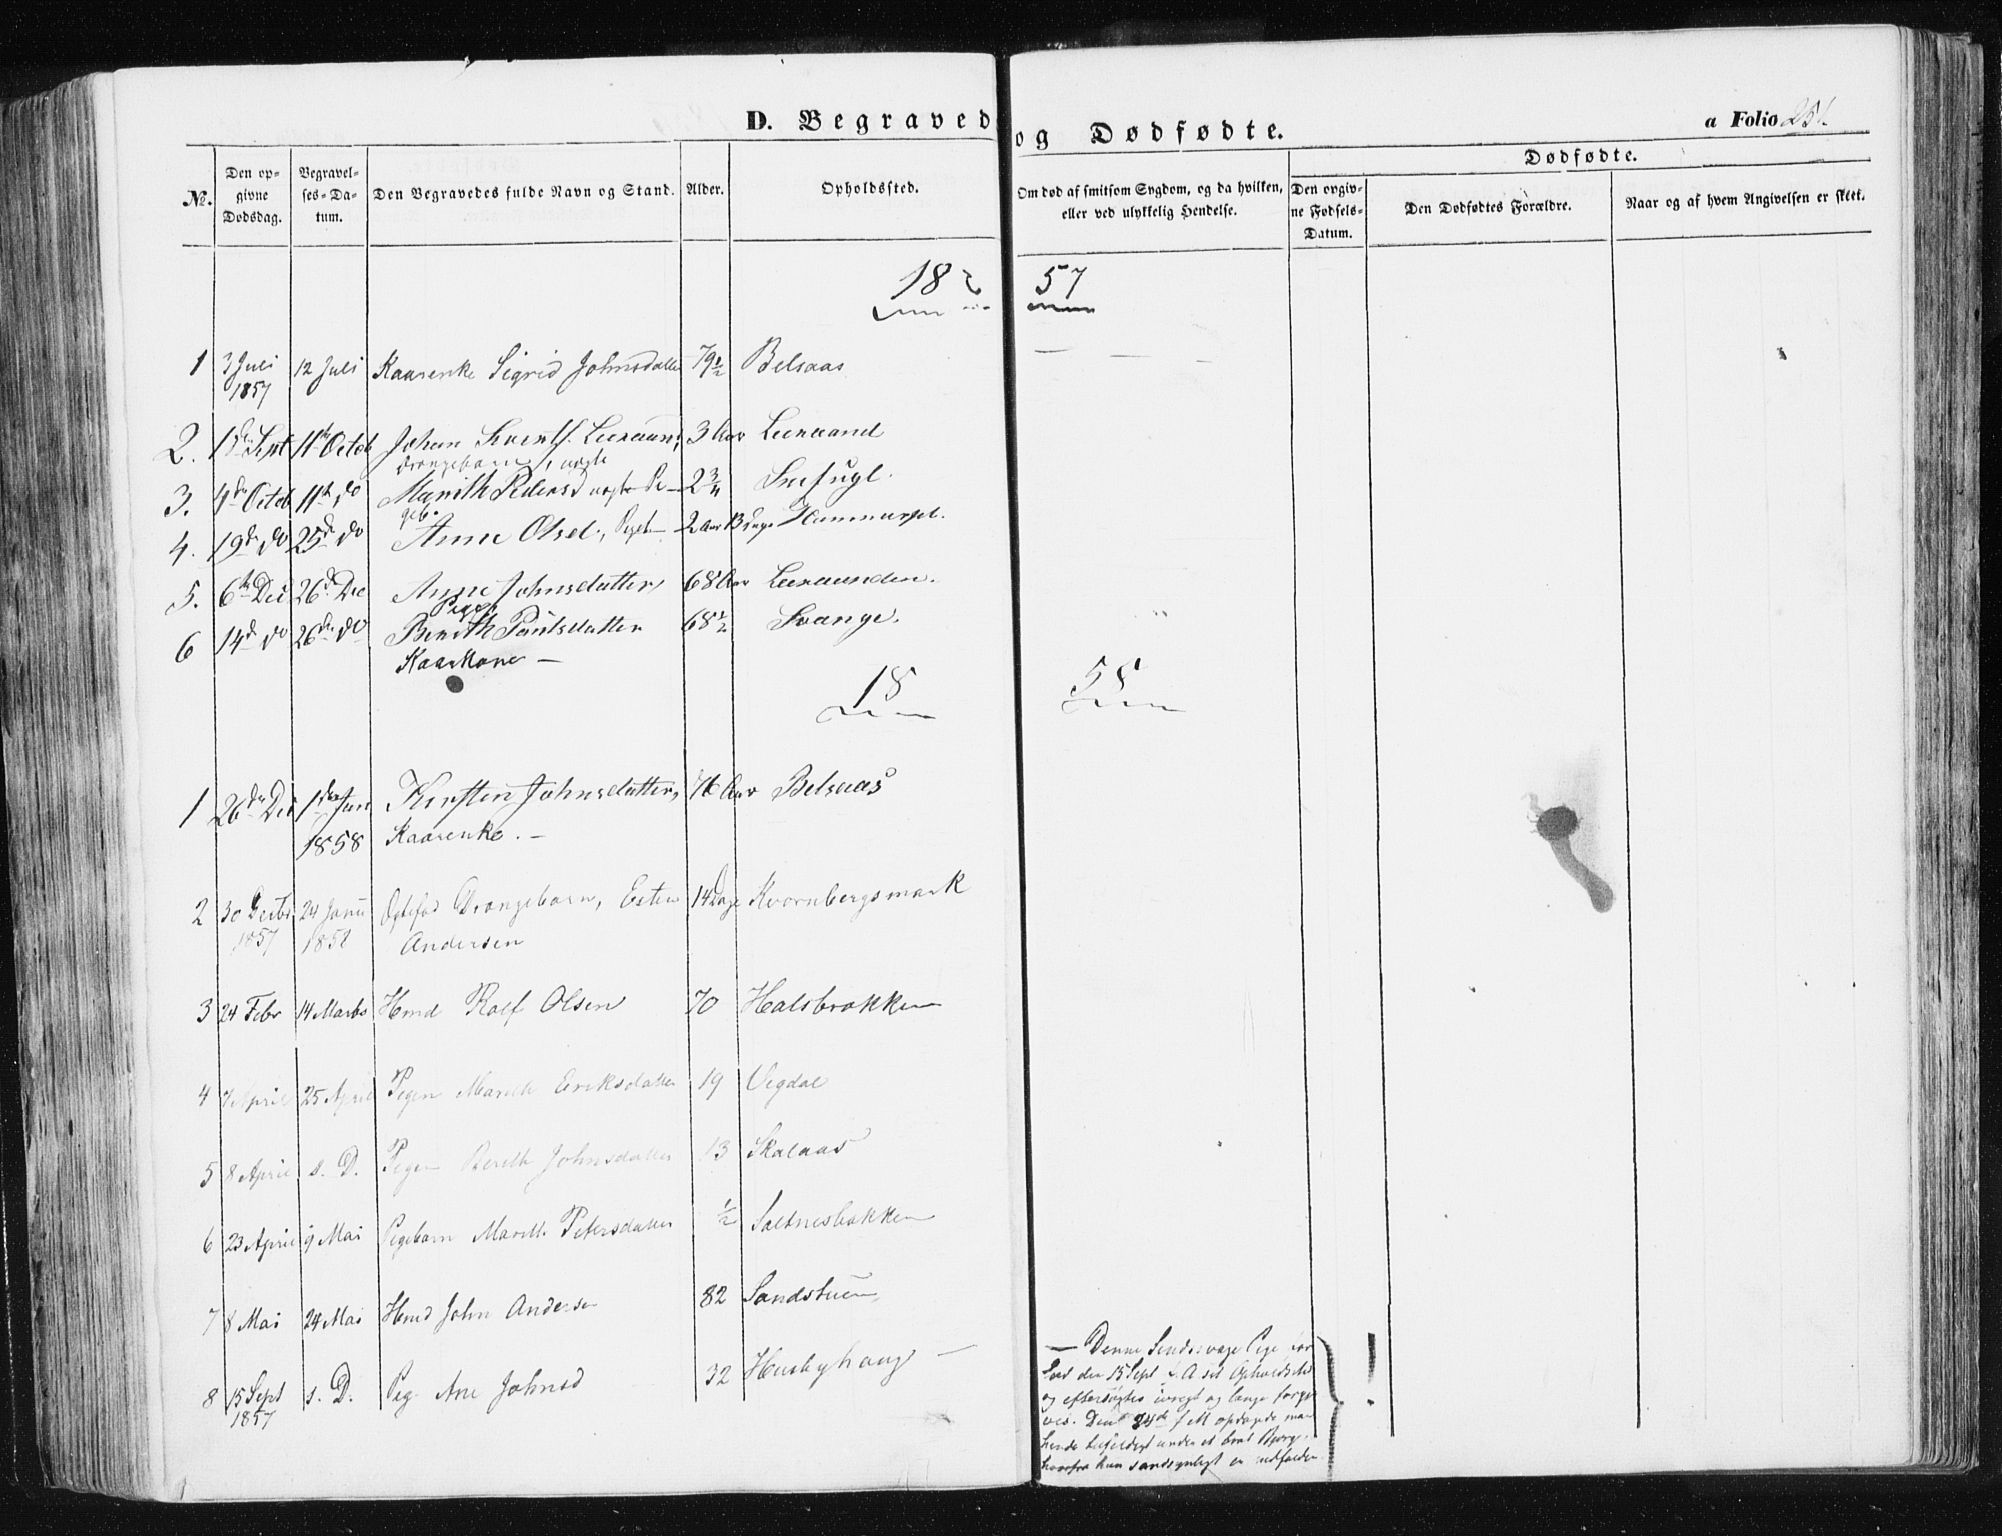 D. Begravede og Dødfødte.
a Folio 251
Dødfødte.
No.
Den opgivne Dødsdag.
Begravelses-Datum.
Den Begravedes fulde Navn og Stand.
Alder.
Opholdssted.
Om død af smitsom Sygdom, og da hvilken, eller ved ulykkelig Hendelse.
Den opgivne Fødsels-Datum.
Den Dødfødtes Forældre.
Naar og af hvem Angivelsen er skeet.
18 57
1 3 Juli 12 Juli Kaarenke Sigrid Johnsdatter 79½ Belsaas
1857
2. Sept 11te Octob Johan 3 Aar
Drengebarn, uægte
3. 4de Octob 11te do Marith Pedersd uægte 2¾
4. 19de do 25de do Anne Olsd., 2 Aar 13 Dage
5. 6te Dec 26de Dec Anne Johnsdatter, 68 Aar Leeraunden.
Pige
6 14de do 26de do Berith Paulsdatter 68½ Svange.
Kaarkone —
18 58
1 26de Dec 1ste Jan Kirsten Johnsdatter, 76 Aar Belsaas
1858 Kaarenke. —
2 30 Decbr 24 Janu Drengebarn, Esten 14 Dage Kvernbergsmark
1857 1858 Andersen
3 24 Febr 14 Marts Hmd Rolf Olsen 70 Halsbrækken
4 7 April 25 April Pigen Marith Eriksdatter 19 Vegdal
5 8 April s. D. Pigen Berith Johnsdatter 13 Skalaas
6 23 April 9 Mai Pigebarn Marith Petersdatter ½ Saltnesbakken
7 8 Mai 24 Mai Hmd John Andersen 82 Sandstuen
8 15 Sept s. D. Pig. Ane Johnsd 32 Husbyhaug —
1857
— Denne Sindssvage Pige for
lod den 15 Sept f. A sit Opholdssted
og eftersøgtes ivrigt og længe forgje
ves. Den 24de f M opdagede man
hende tilfældigt under et brat Bjerg,
hvorfra hun sandsynligt er nedfalden